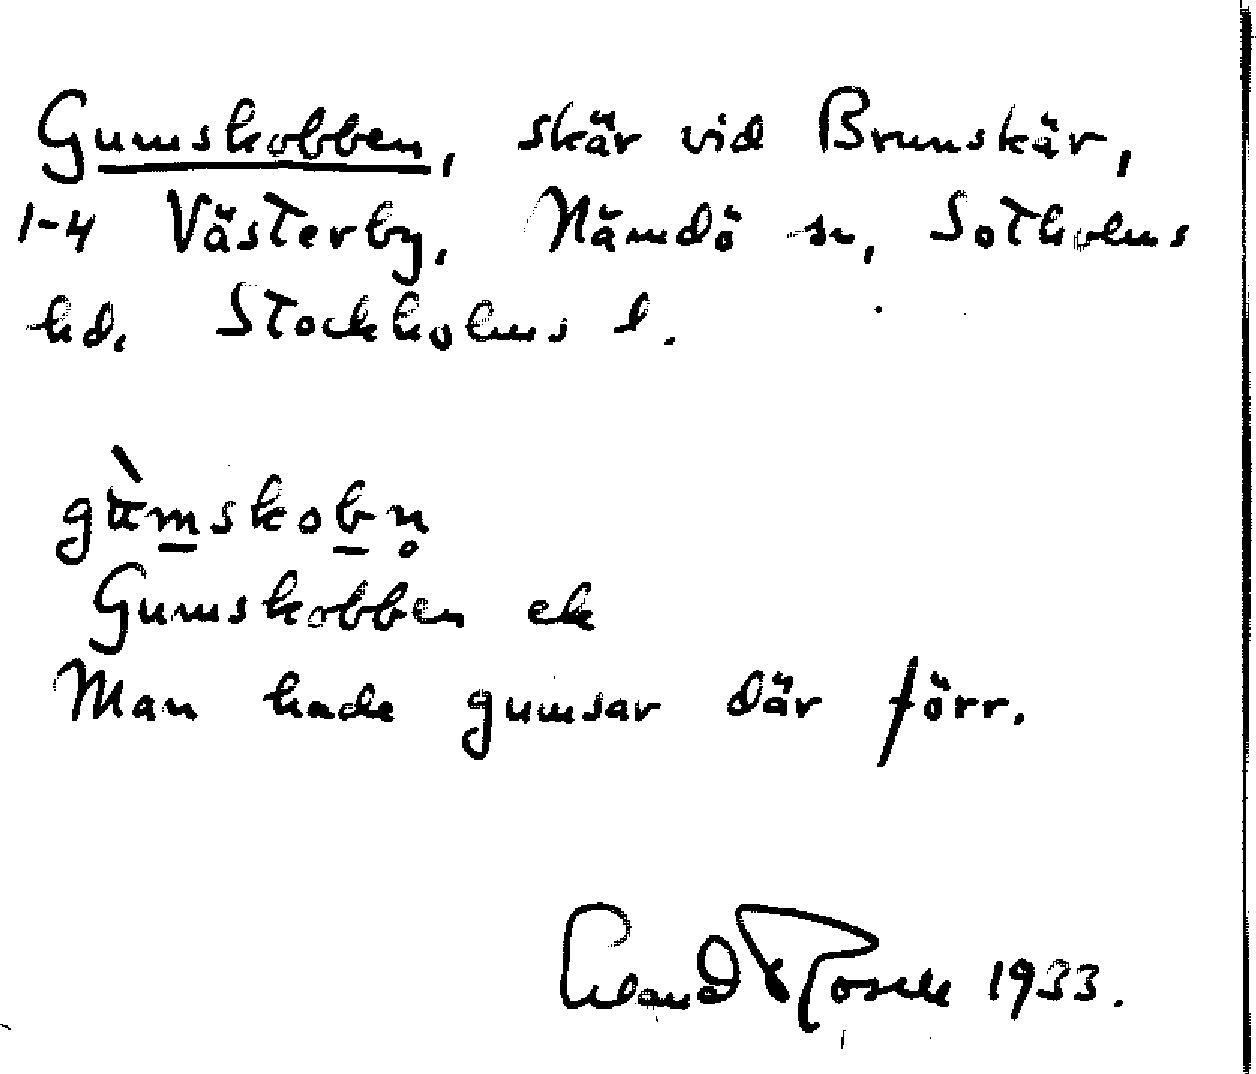 Gumskobben, skär vid Brunskär,
1-4 Västerby, Nämdö sn, Sotholms
hd. Stockholms l.
gùmskobn̥
Gumskobben ek
Man hade gumsar där förr.
Erland Rosell 1933.